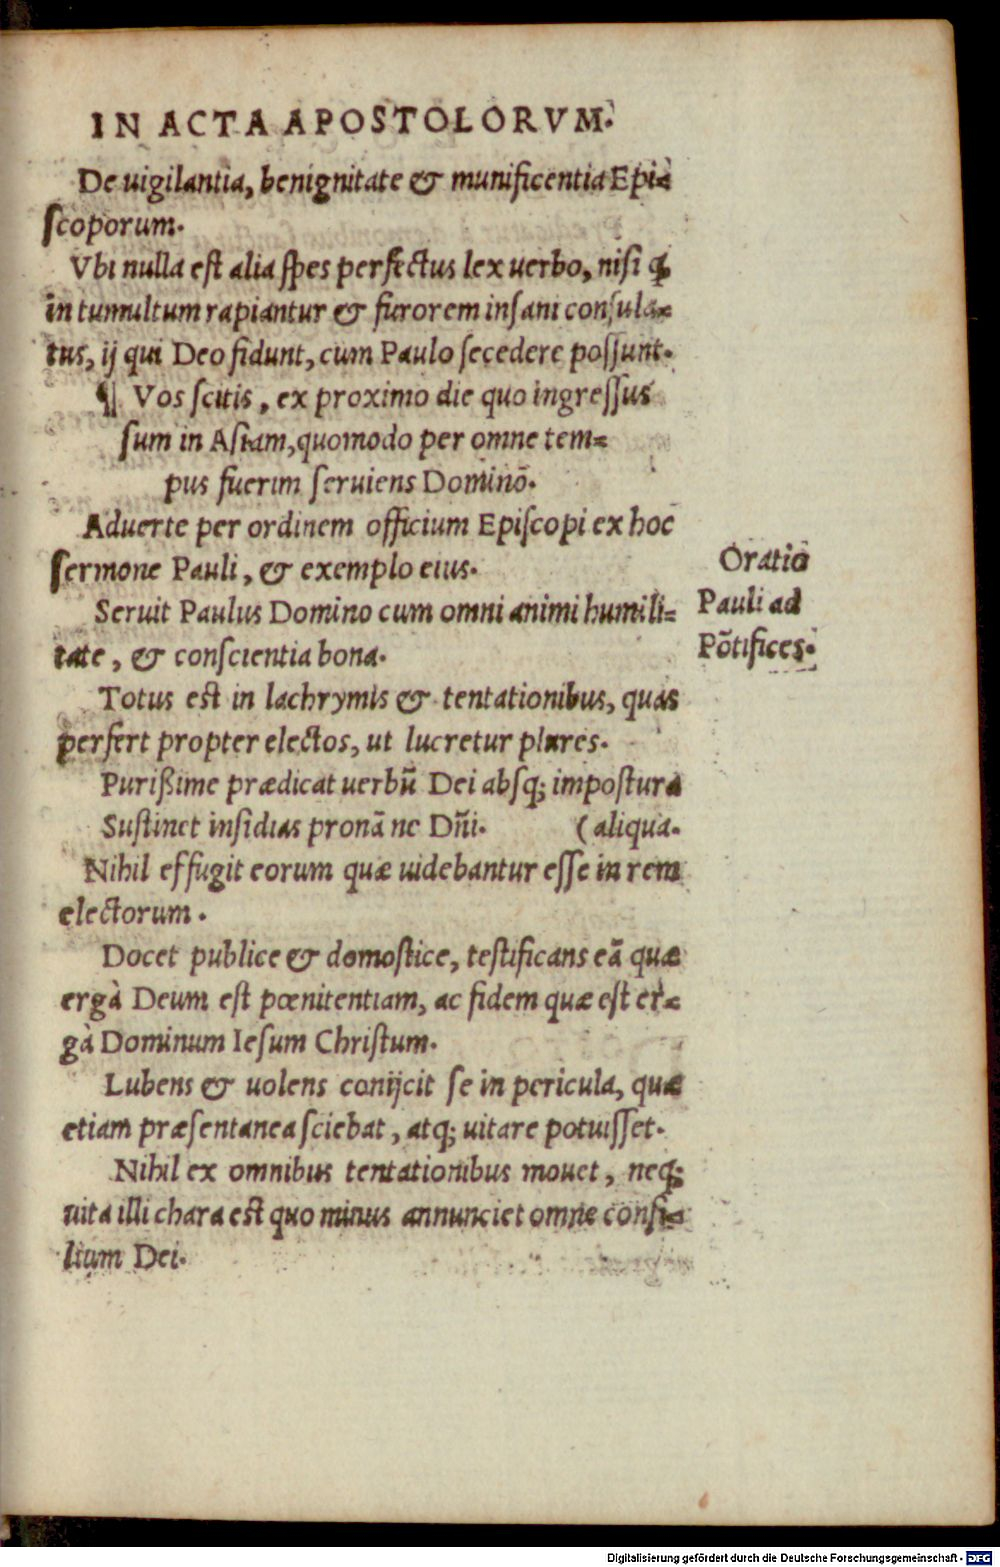 IN ACTA APOSTOLORVM.
De uigilantia, benignitate & munificentia Epi-
scoporum.
Vbi nulla est alia spes perfectus lex uerbo, nisi ꝙ
in tumultum rapiantur & furorem insani consula-
tus, ij qui Deo fidunt, cum Paulo secedere possunt.
¶ Vos scitis, ex proximo die quo ingressus
sum in Asiam, quomodo per omne tem-
pus fuerim seruiens Dominō.
Aduerte per ordinem officium Episcopi ex hoc
sermone Pauli, & exemplo eius.
Oratio
Pauli ad
Pōtifices.
Seruit Paulus Domino cum omni animi humili-
tate, & conscientia bona.
Totus est in lachrymis & tentationibus, quas
perfert propter electos, ut lucretur plures.
Purißime prædicat uerbū Dei absq; impostura
Sustinet insidias pronā ne Dñi. (aliqua.
Nihil effugit eorum quæ uidebantur esse in rem
electorum.
Docet publice & domostice, testificans eā quæ
ergà Deum est pœnitentiam, ac fidem quæ est er-
gà Dominum Iesum Christum.
Lubens & uolens conijcit se in pericula, quæ
etiam præsentanea sciebat, atq; uitare potuisset.
Nihil ex omnibus tentationibus mouet, neq;
uita illi chara est quo minus annunciet omne consi-
lium Dei.
Digitalisierung gefördert durch die Deutsche Forschungsgemeinschaft - DFG